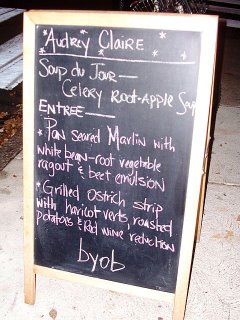 *Audrey Claire*
Soup du Jour—
Celery Root-Apple Soup
Entree—
*Pan seared Marlin with
white bean-root vegetable
ragout & beet emulsion
*Grilled Ostrich strip
with haricot verts, roasted
potatoes & Red wine reduction
byob